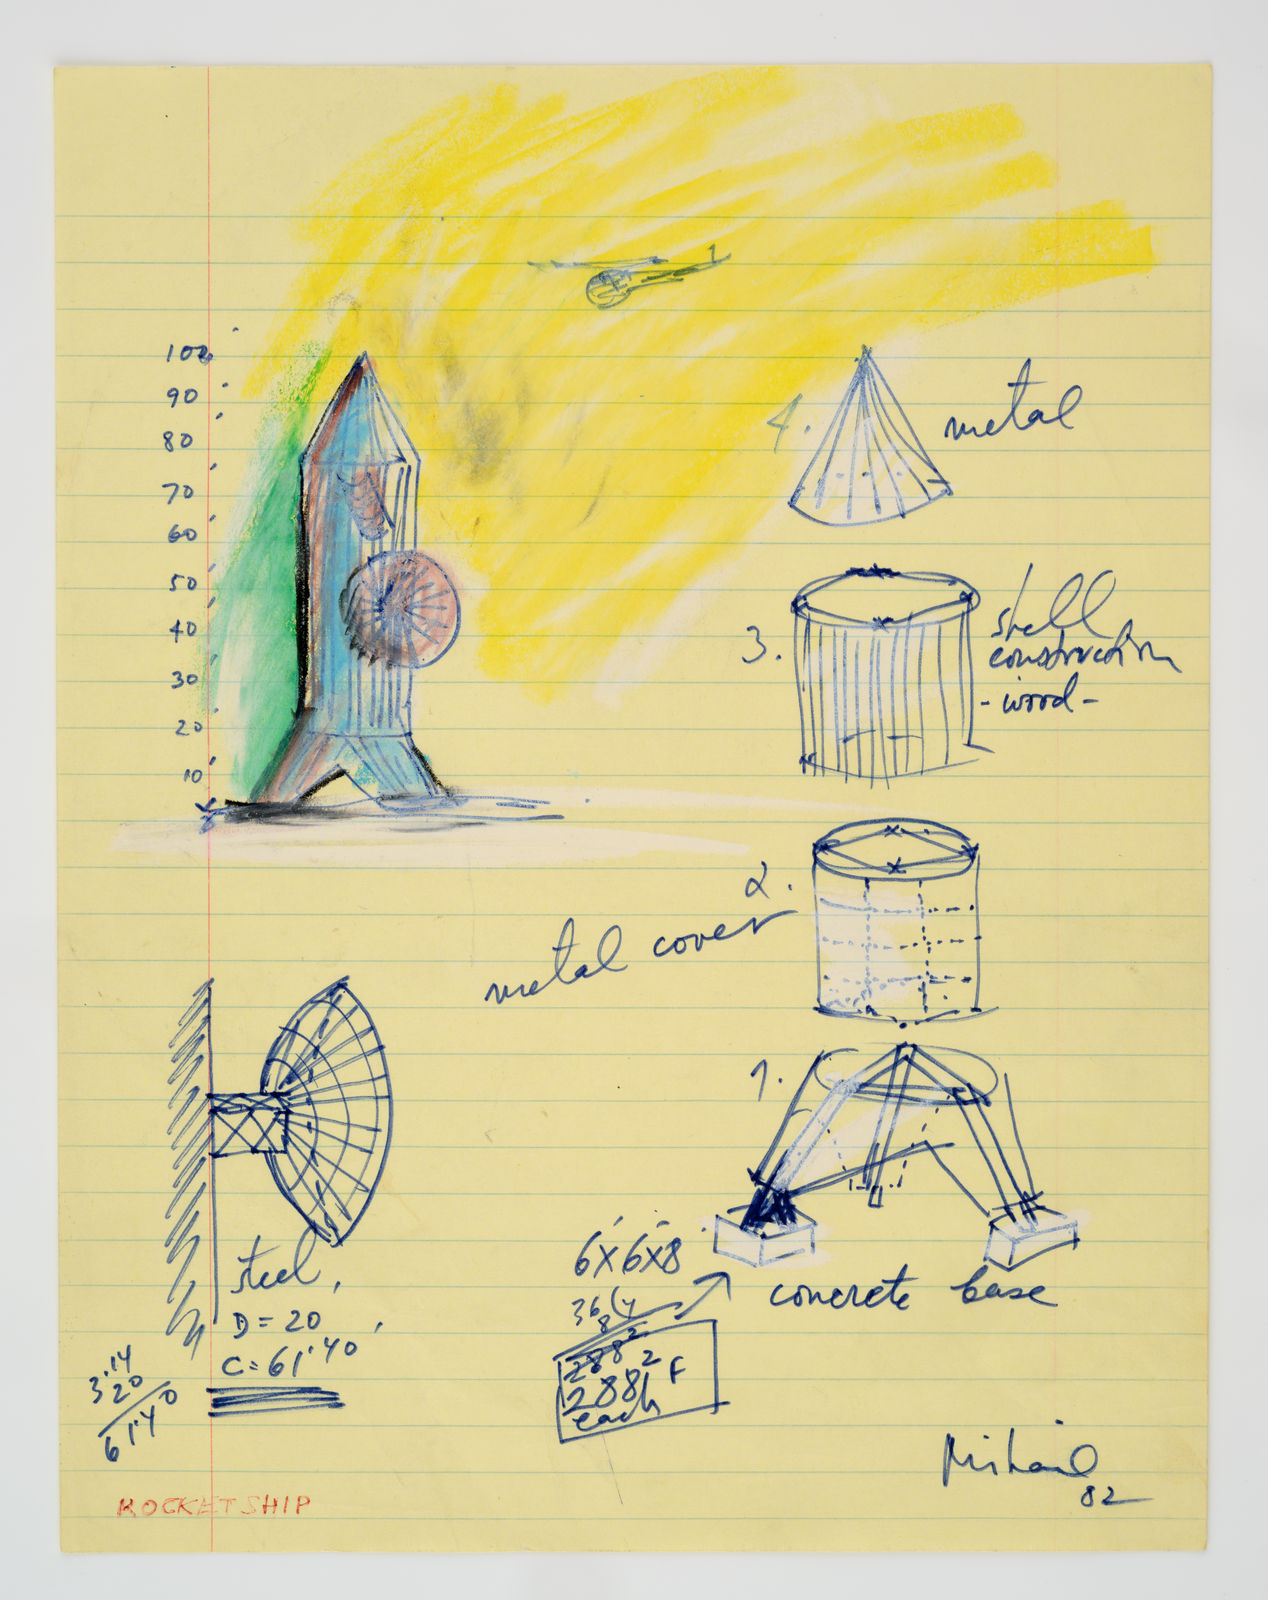 100
90
80
70
60
50
40
30
20
10
4.
metal
3.
shell
construction
- wood -
2.
metal cover
1.
6'x6'x8
36(4
8
288²
288 F²
each
concrete base
steel,
D = 20'
C = 61'40'
3'14
20
61'40
82
ROCKETSHIP